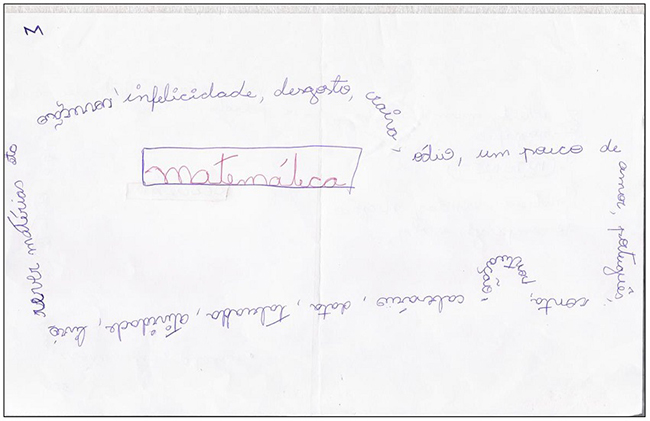 matemática
infelicidade, desgosto,
raiva,
ódio, um pouco de
amor, português,
conta,
pontua
ção
data, tabuada, atividade, livro
rever matérias